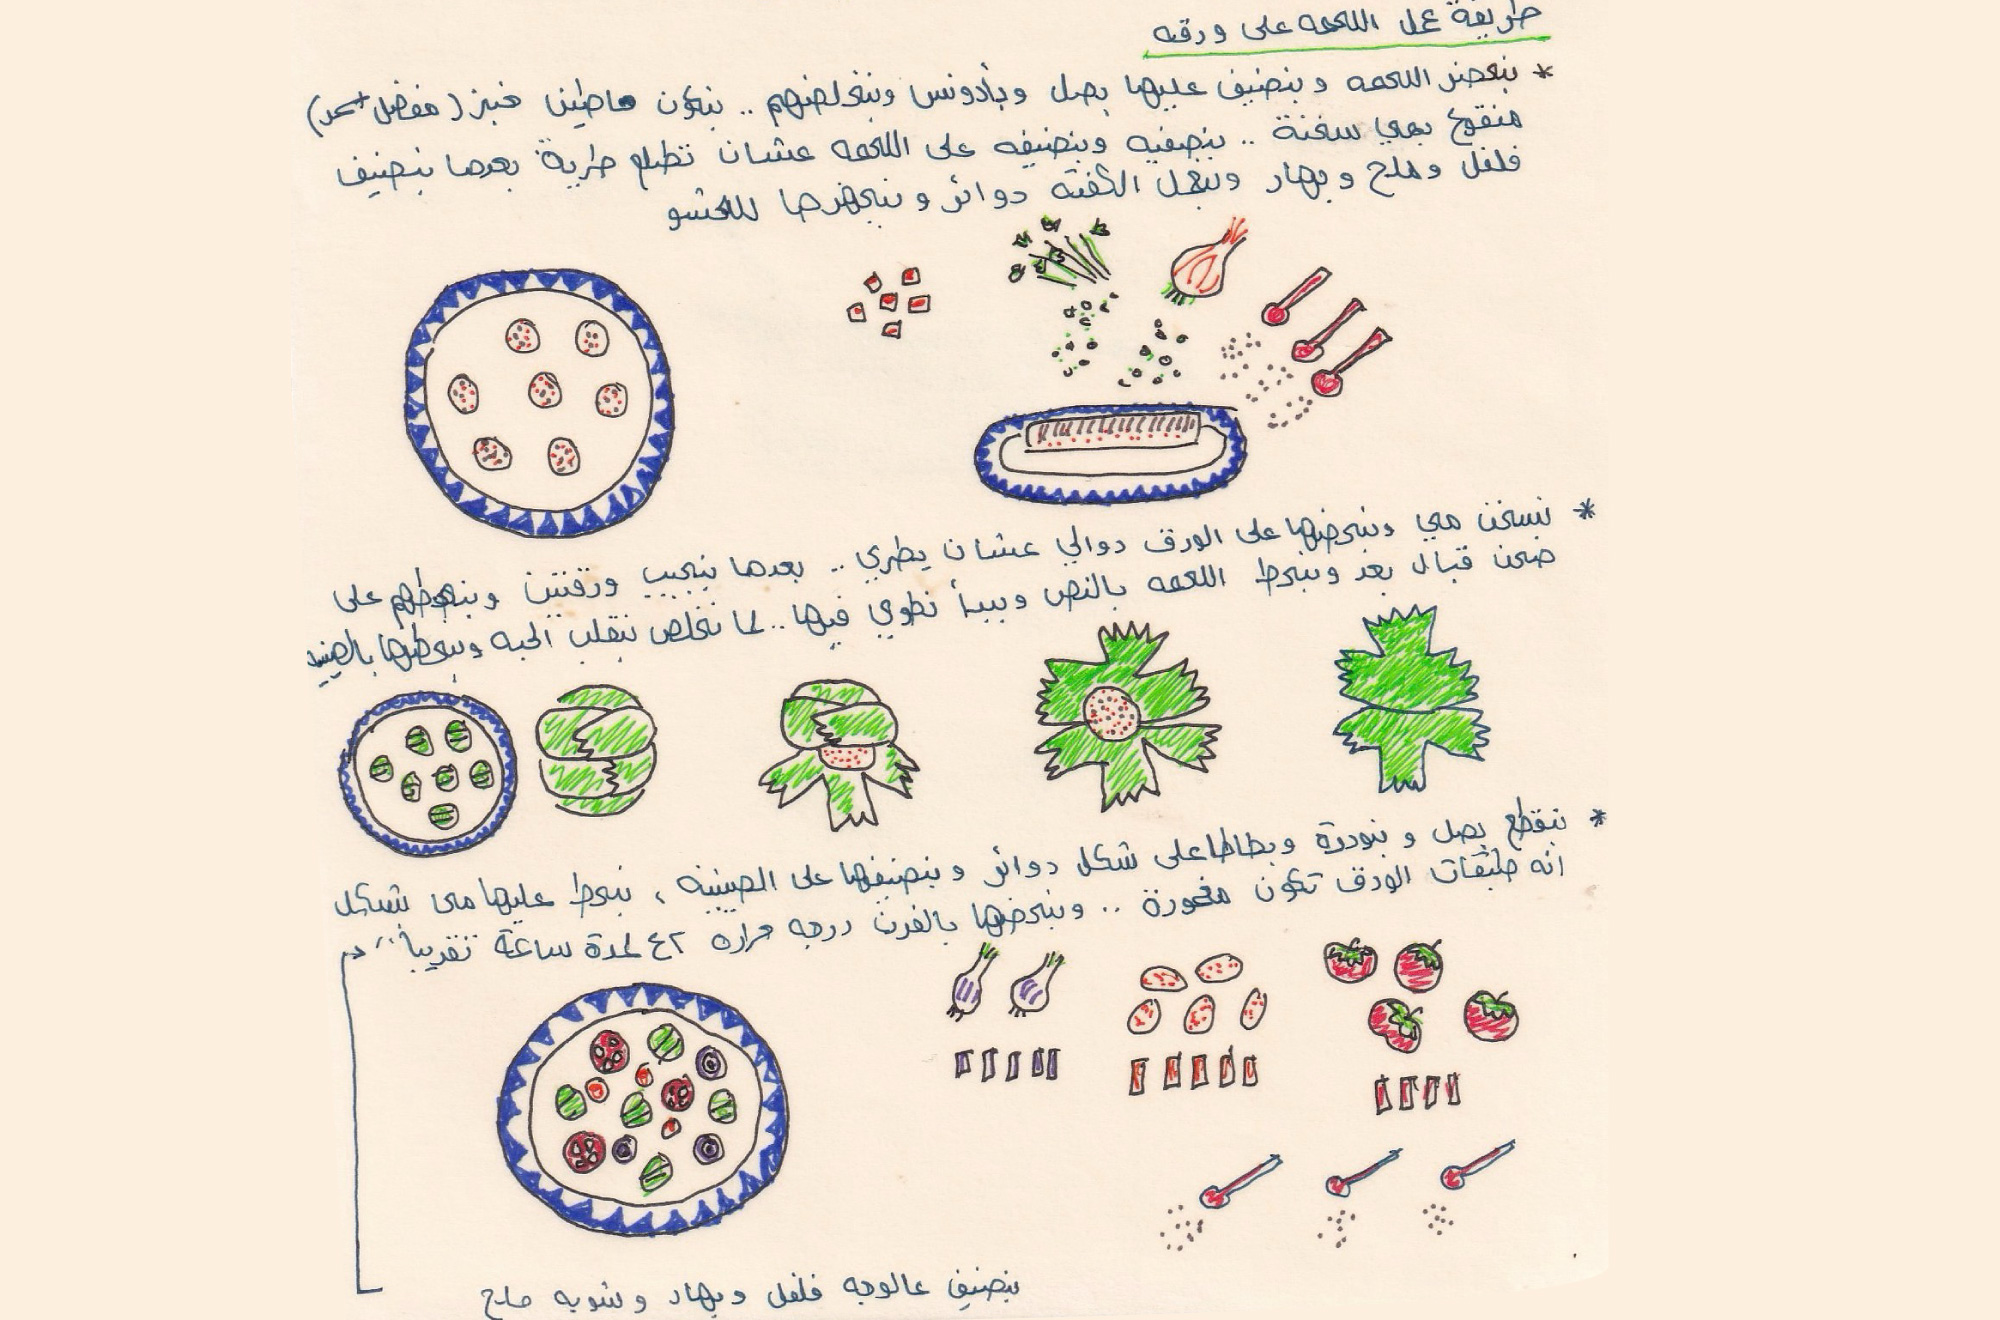 طريقة عمل اللحمه على ورقه
* بنحضر اللحمه و بنضيف عليها بصل وبأدونس وبنخلطهم .. بنكون حاطين خبز (مفضل
منقوع بمي سخنة .. بنصفيه وبنضيفه على اللحمه عشان تطلع طرية بعدها بنضيف
فلفل وملح و بهار وبنعمل الكفته دوائر و بنجهزها للحشو
* نسخن مي وبنحطها على الورق دوالي عشان يطري .. بعدها بنجيب ورقتين وبنحطهم على
صحن قبال بعد وبنحط اللحمه بالنص وببدأ نطوي فيها .. لما نخلص بنقلب الحبه وبنحطها بالصينيه
* بنقطع بصل و بندورة وبطاطا على شكل دوائر و بنضيفها على الصينيه ، بنحط عليها مي بشكل
انه طبقات الورق تكون مغمورة .. وبنحطها بالفرن درجه حراره ٢٤ لمدة ساعة تقريباً
بنضيف عالوجه فلفل وبهار وشويه ملح